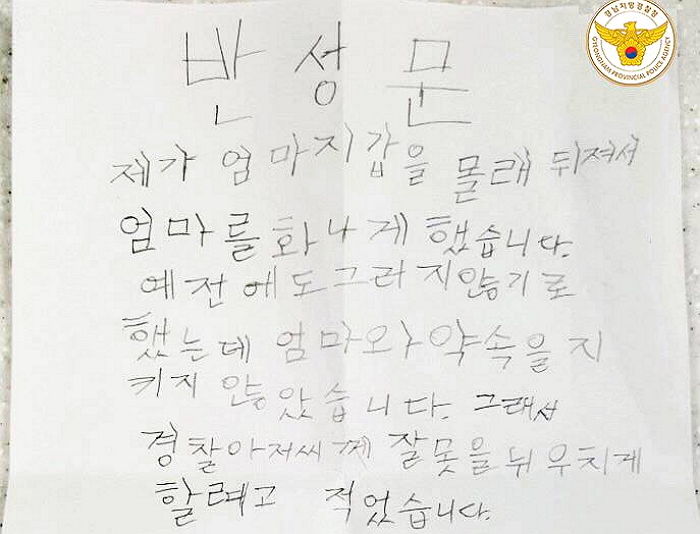 경남지방경찰청
GYEONGNAM PROVINCIAL POLICE AGENCY
반성문
제가 엄마지갑을 몰래 뒤져서
엄마를 화나게 했습니다.
예전에도 그러지않기로
했는데 엄마와 약속을 지
키지 않았습니다. 그래서
경찰아저씨께 잘못을 뉘우치게
할려고 적었습니다.